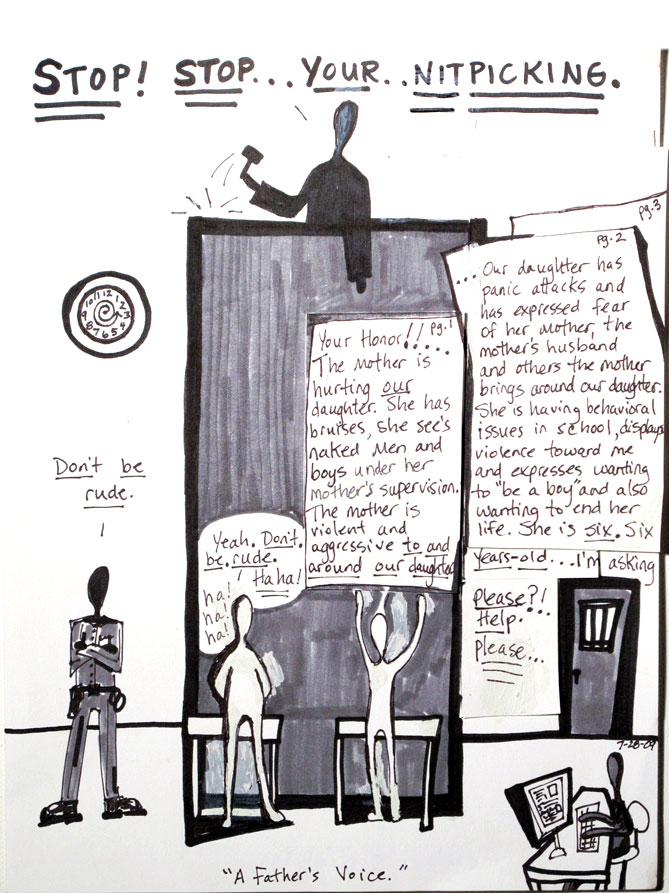 STOP! STOP... YOUR.. NITPICKING.
10 11 12 1 2 3 4 5 6 7 8 9
Don't be
rude.
Yeah. Don't.
be. rude.
Ha ha!
ha!
ha.
ha!
Pg. 1
Your Honor!!....
The mother is
hurting our
daughter. She has
bruises, she see's
naked men and
boys under her
mother's supervision.
The mother is
violent and
aggressive to and
around our daughter
pg. 2
... Our daughter has
panic attacks and
has expressed fear
of her mother, the
mother's husband
and others the mother
brings around our daughter.
She is having behavioral
issues in school, displays
violence toward me
and expresses wanting
to "be a boy" and also
wanting to end her
life. She is six. Six
pg. 3
years-old... I'm asking
Please?!...
Help.
Please...
7-28-09
"A Father's Voice."